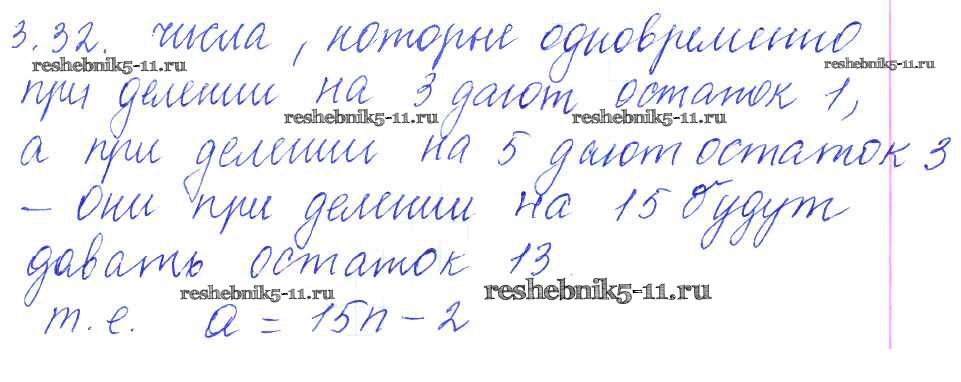 3.32. Числа, которые одновременно
reshebnik5-11.ru reshebnik5-11.ru
при делении на 3 дают остаток 1,
reshebnik5-11.ru reshebnik5-11.ru
а при делении на 5 дают остаток 3
– они при делении на 15 будут
давать остаток 13
reshebnik5-11.ru reshebnik5-11.ru
т.е. a = 15n – 2